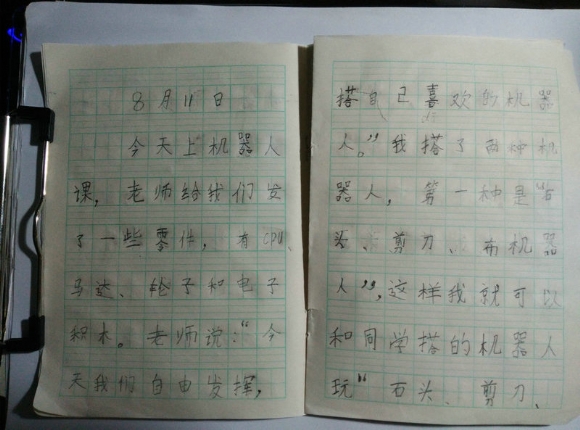 8月11日
今天上机器人
课，老师给我们发
了一些零件，有CPU、
马达、轮子和电子
积木。老师说：“今
天我们自由发挥，
搭自己喜欢的机器
人。”我搭了两种机
器人，第一种是“石
头、剪刀、布机器
人”，这样我就可以
和同学搭的机器人
玩“石头、剪刀、